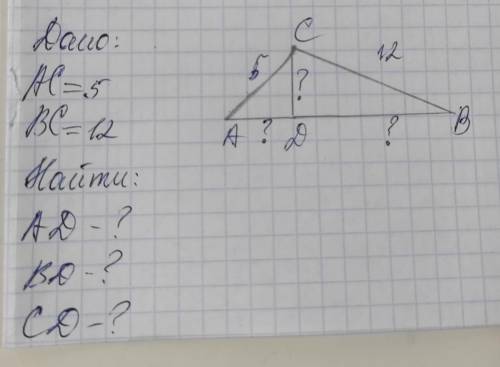 Дано:
AC=5
BC=12
Найти:
AD-?
BD-?
CD-?
C
5
12
?
A
?
D
?
B